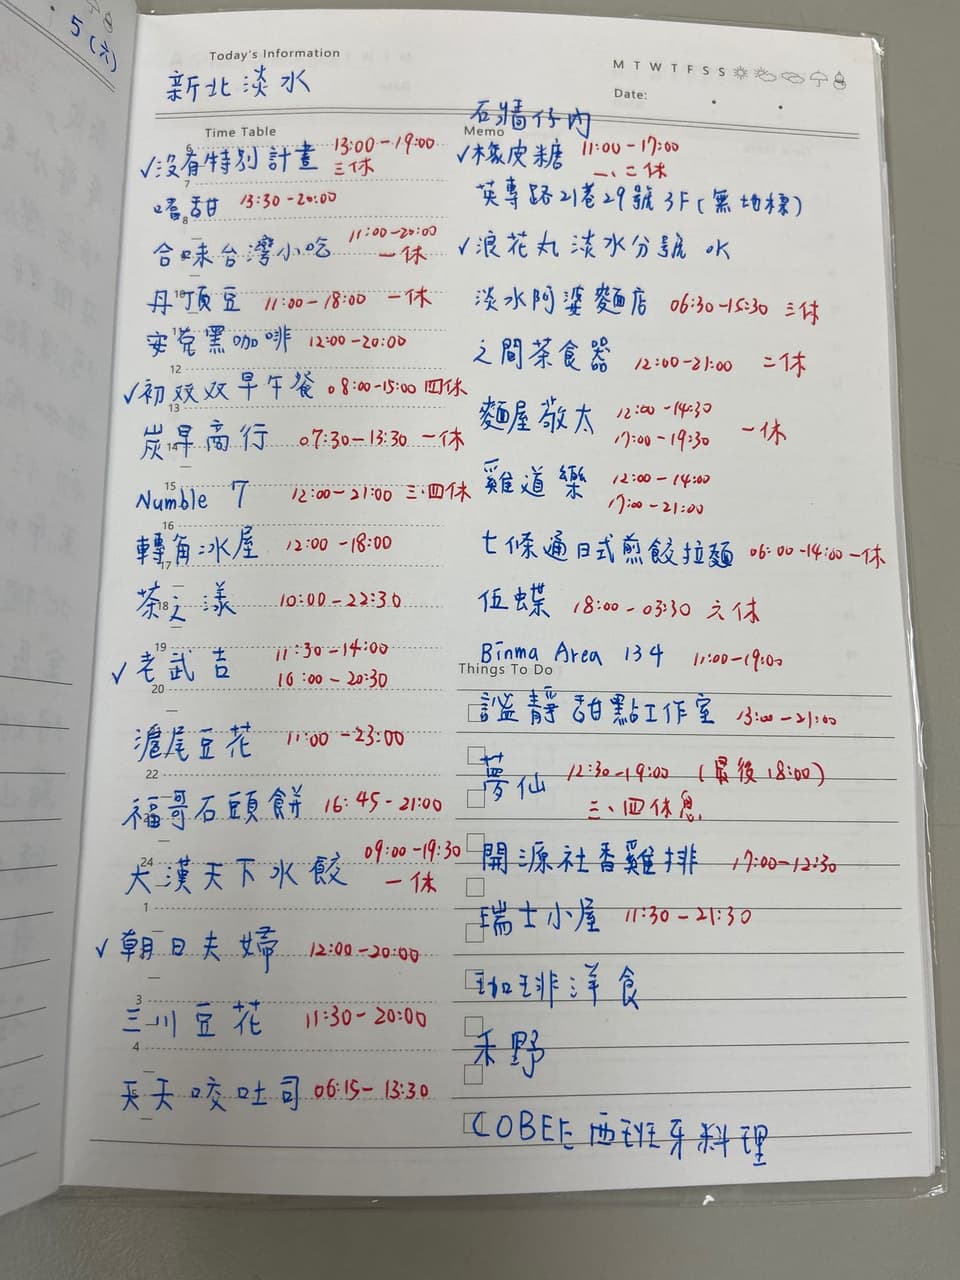 5 (六)
Today's Information
新北淡水
M T W T F S S
Date:
Time Table
6
✓沒有特別計畫 13:00-19:00
三休
7
嗜甜 13:30-20:00
8
合味台灣小吃 11:00-20:00
一休
丹頂豆 11:00-18:00 一休
10
安克黑咖啡 12:00-20:00
11
12
✓初双双早午餐 08:00-15:00 四休
13
炭早商行 07:30-13:30 一休
14
15
Numble 7 12:00-21:00 三、四休
16
轉角冰屋 12:00-18:00
17
茶之漾 10:00-22:30
18
19
✓老武吉 11:30-14:00
16:00-20:30
20
滬尾豆花 11:00-23:00
22
福哥石頭餅 16:45-21:00
24
大漢天下水餃 09:00-19:30
一休
1
✓朝日夫婦 12:00-20:00
3
三川豆花 11:30-20:00
4
天天咬吐司 06:15-13:30
石牆仔內
Memo
✓橡皮糖 11:00-17:00
一、二休
英專路21巷29號3F(無地標)
✓浪花丸淡水分號 OK
淡水阿婆麵店 06:30-15:30 三休
之間茶食器 12:00-21:00 二休
麵屋敬太 12:00-14:30
17:00-19:30 一休
雞道樂 12:00-14:00
17:00-21:00
七條通日式煎餃拉麵 06:00-14:00 一休
伍蝶 18:00-03:30 六休
Binma Area 134 11:00-19:00
Things To Do
謐靜甜點工作室 13:00-21:00
夢仙 12:30-19:00 (最後18:00)
三、四休息
開源社香雞排 17:00-12:30
瑞士小屋 11:30-21:30
珈琲洋食
禾野
COBEE西班牙料理